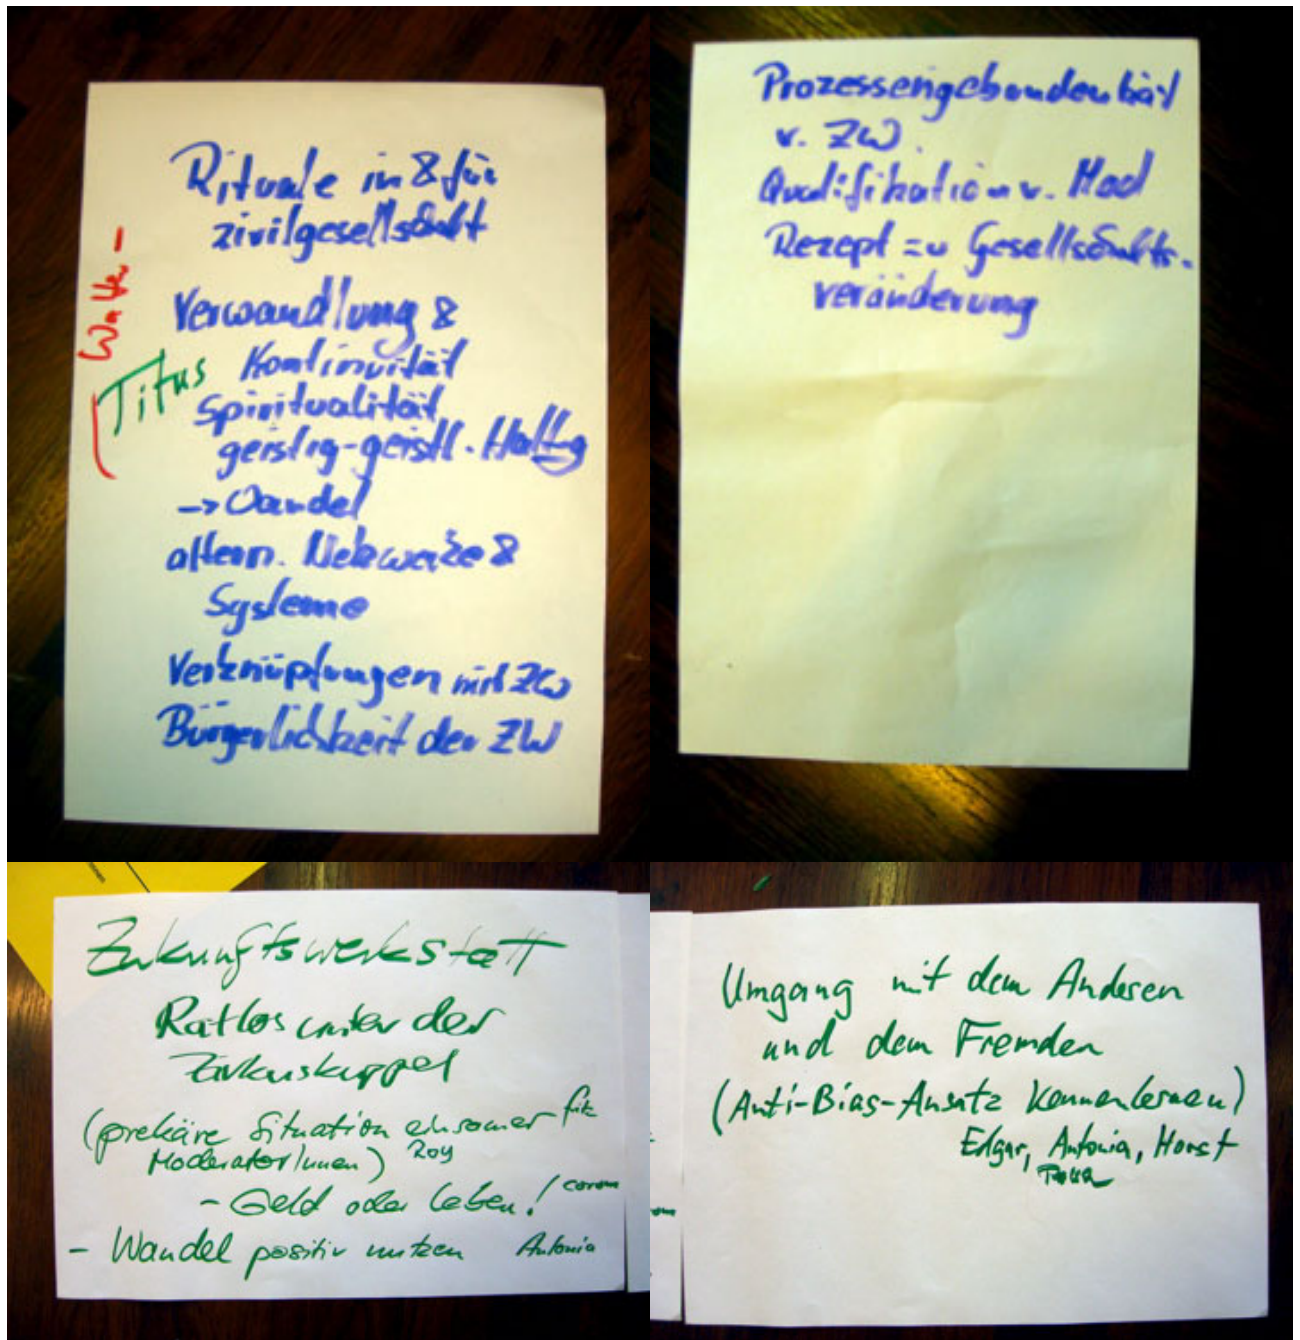 Rituale in & für
zivilgesellschaft
Verwandlung &
Kontinuität
Spiritualität
geistig-geistl. Haltg
-> Wandel
altern. Netzwerke &
Systeme
Verknüpfungen mit ZW
Bürgerlichkeit der ZW
Titus
Prozesseingebundenheit
v. ZW.
Qualifikation v. Mod
Rezept zu Gesellschafts-
veränderung
Zukunftswerkstatt
Ratlos unter der
Zirkuskuppel
(prekäre Situation einsamer
ModeratorInnen) Roy
- Geld oder Leben!
- Wandel positiv nutzen Antonia
Umgang mit dem Anderen
und dem Fremden
(Anti-Bias-Ansatz kennenlernen)
Edgar, Antonia, Horst